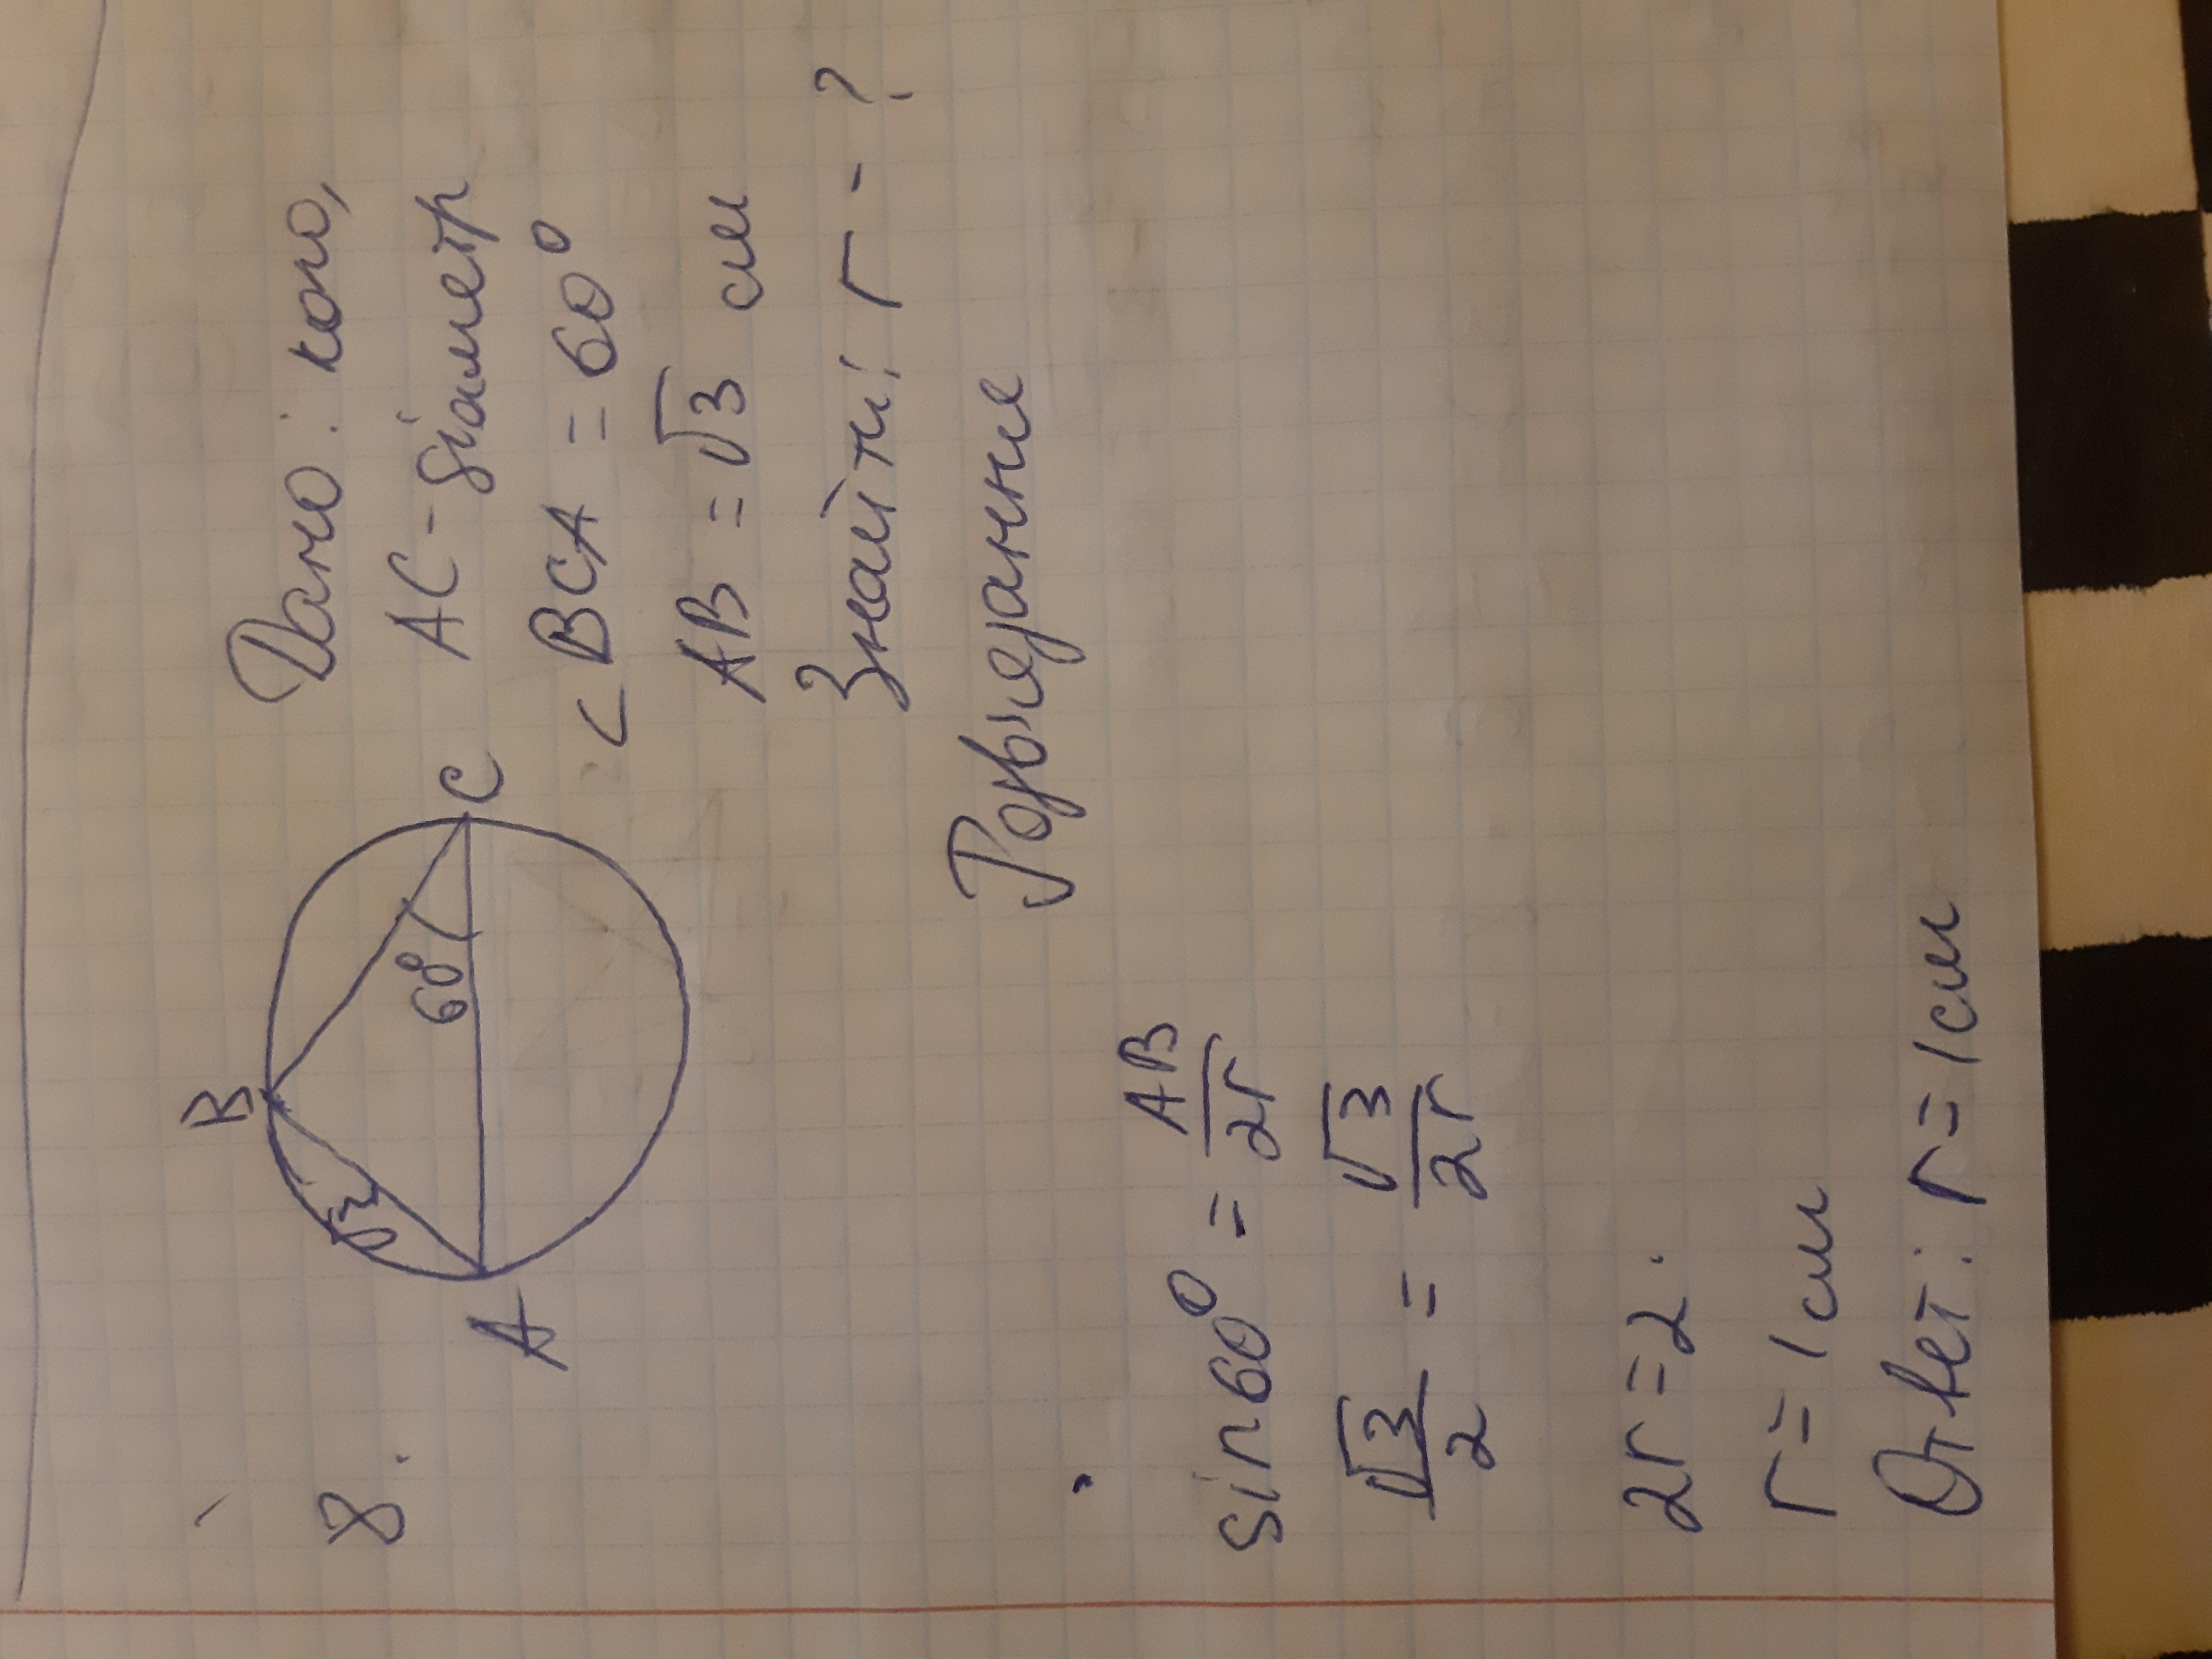 8.
B
√3
60°
A
C
Дано: коло,
AC - діаметр
∠BCA = 60°
AB = √3 см
Знайти: r - ?
Розв'язання
sin60° = AB/2r
√3/2 = √3/2r
2r = 2.
r = 1см
Ответ: r = 1см